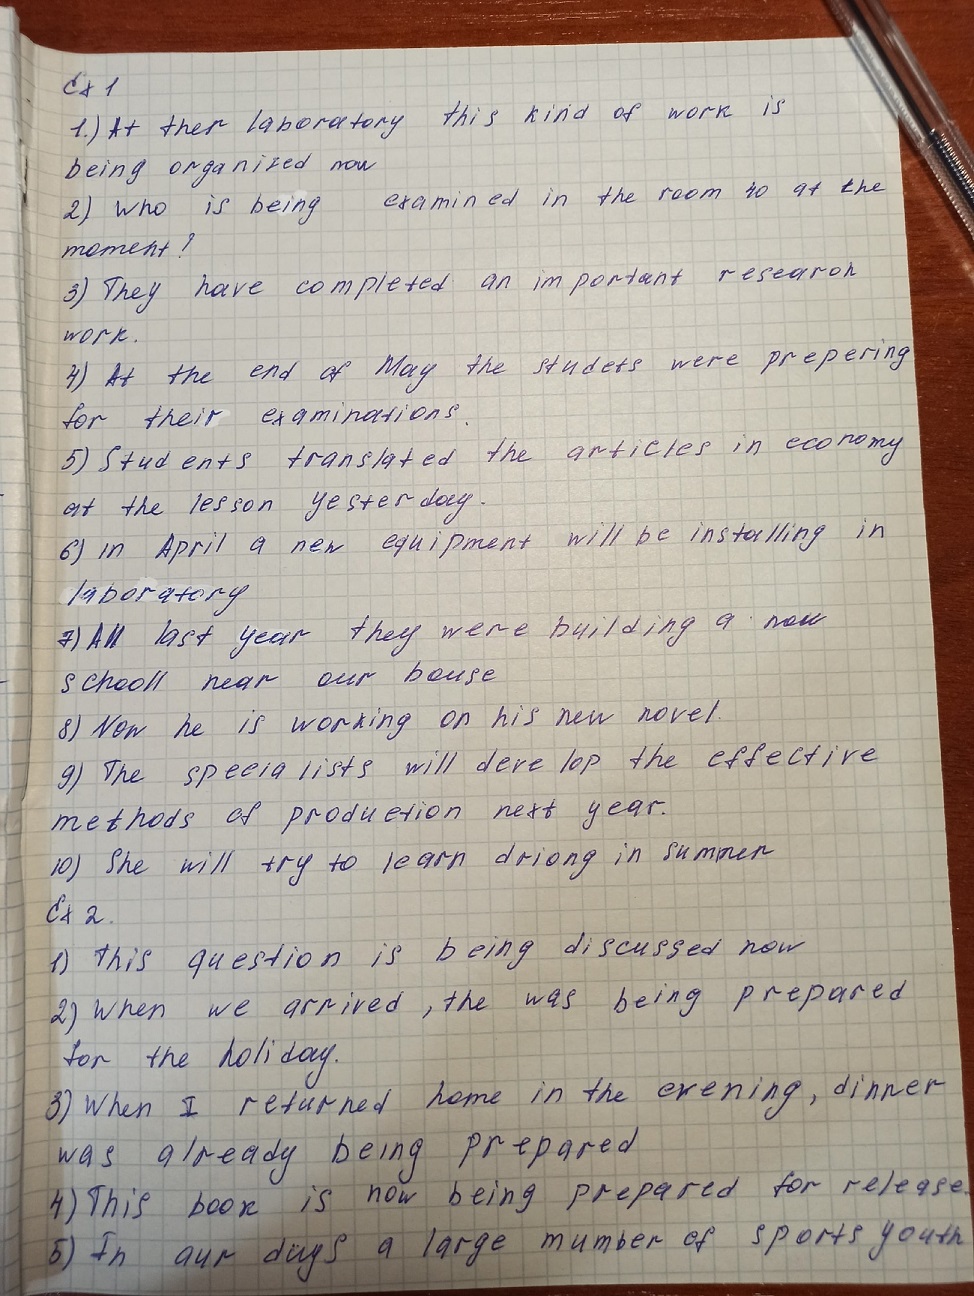 Ex 1
1.) At ther laboratory this kind of work is
being organized now
2) Who is being examined in the room 40 at the
moment?
3) They have completed an important research
work.
4) At the end of May the studets were prepering
for their examinations.
5) Students translated the articles in economy
at the lesson yesterday.
6) in April a new equipment will be installing in
laboratory
7) All last year they were building a new
schooll near our house
8) Now he is working on his new novel.
9) The specialists will develop the effective
methods of production next year.
10) She will try to learn in summer
Ex 2.
1) This question is being discussed now
2) When we arrived, the was being prepared
for the holiday.
3) When I returned home in the evening, dinner
was already being prepared
4) This book is now being prepared for release.
5) In aur days a large mumber of sports youth